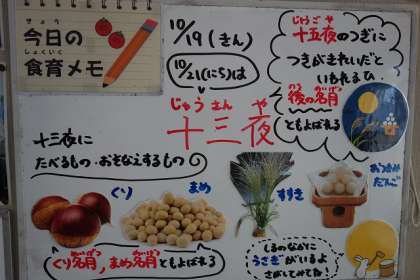 きょう
今日の
しょくいく
食育メモ
10/19(きん)
10/21(にち)は
じゅうさんや
十三夜
じゅうごや
十五夜のつぎに
つきがきれいだと
いわれるひ
後の名月
ともよばれる
十三夜に
たべるもの・おそなえするもの
くり
まめ
すすき
おつきみ
だんご
くり名月,まめ名月ともよばれる
しろのなかに
うさぎがいるよ
さがしてみてね!